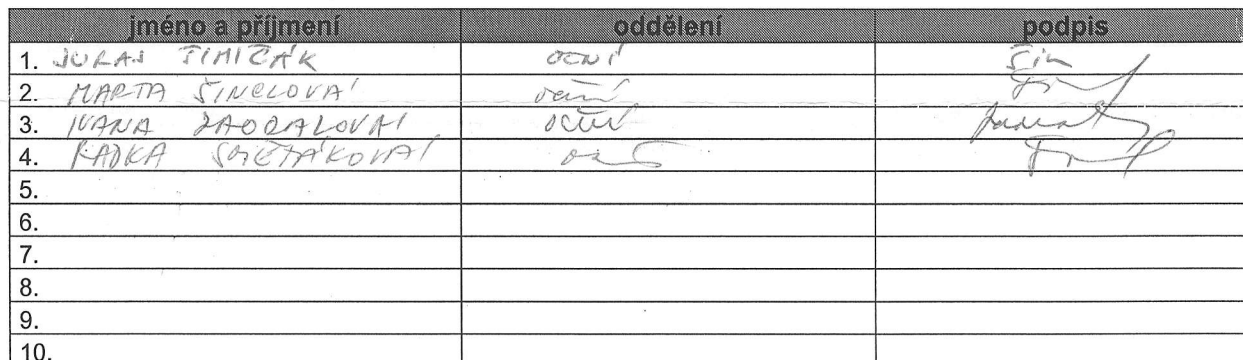 jméno a příjmení oddělení podpis
1. JURAJ ŠIMIČÁK oční
2. MARTA ŠINCLOVÁ oční
3. IVANA ZAORALOVÁ oční
4. RADKA SMETÁKOVÁ oční
5.
6.
7.
8.
9.
10.